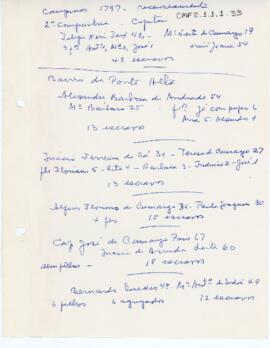 Campinas 1797 - recenseamento
CMP2.1.1.1-33
2ª Companhia - Capitão
Felipe Neri Teix 42 - Mª de Camargo 19
3 fºs Antº, Mª3, José 1 Joana 54
41 escravos
Bairro da Ponte Alta
Alexandre Barbosa de Andrade 54
Mª Barbara 25 fºs José Gaspar 6
Ana 5 1
13 escravos
Inácio Ferreira de Sá 30 - Teresa Camargo 27
fls Floriano 5 - Rita 4 - Barbara 3 - 2 - José 1
13 escravos
Floriano de Camargo 35 - Paula Joaquina 30
+ fls 15 escravos
Cap José de Camargo Pais 67
de Arruda Leite 60
sem filhos - 18 escravos
Bernardo Guedes 49 Mª Antª de 49
6 filhos 6 agregados 12 escravos